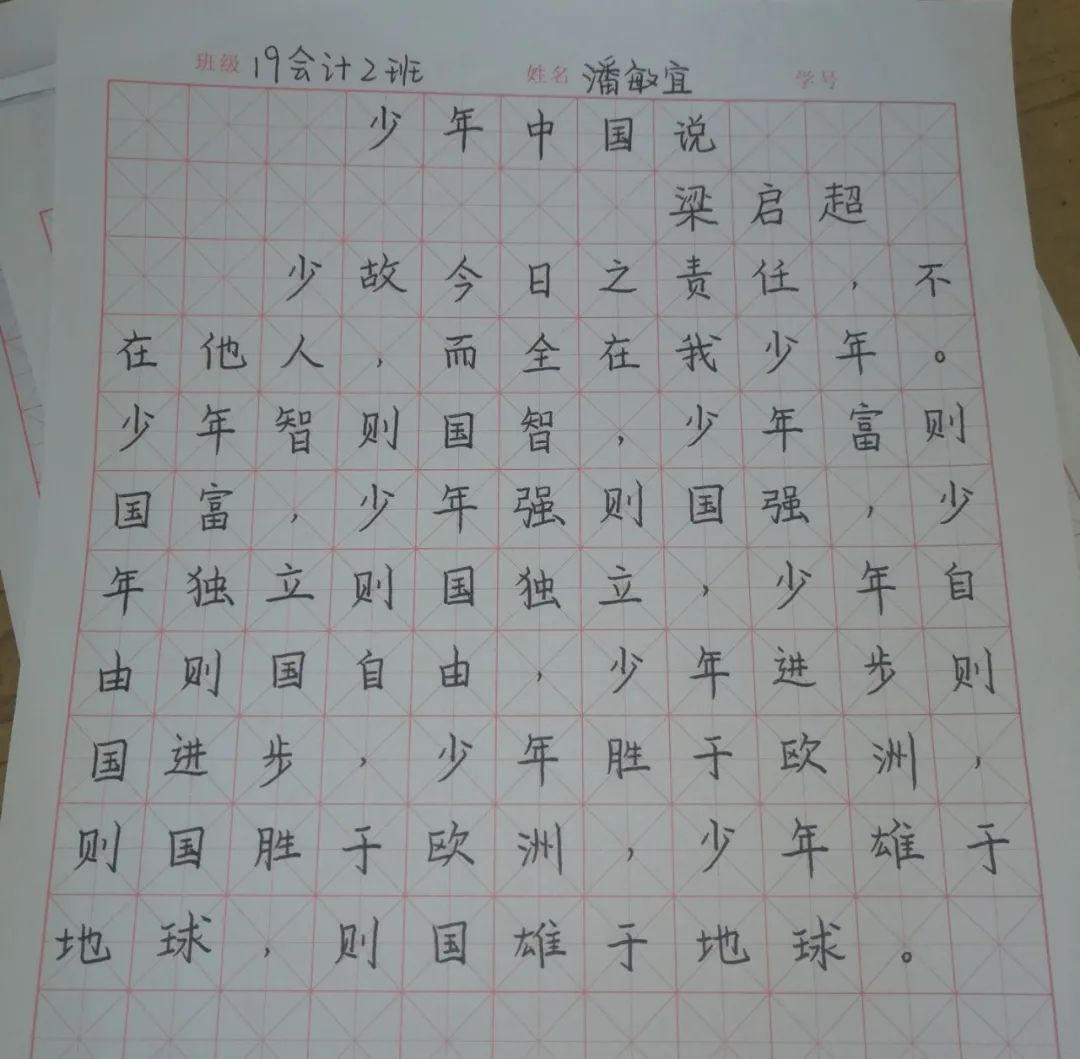 班级 19会计2班 姓名 潘敏宜 学号
少年中国说
梁启超
少故今日之责任，不
在他人，而全在我少年。
少年智则国智，少年富则
国富，少年强则国强，少
年独立则国独立，少年自
由则国自由，少年进步则
国进步，少年胜于欧洲，
则国胜于欧洲，少年雄于
地球，则国雄于地球。